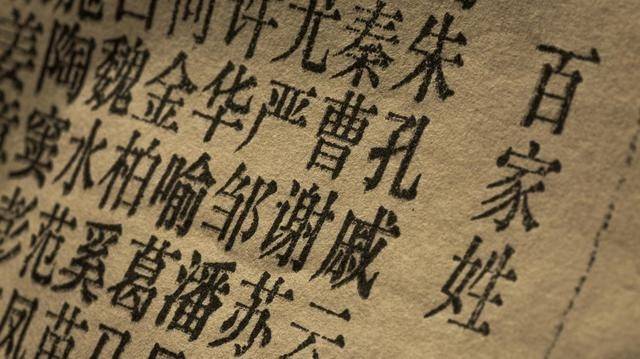 百家姓
朱秦尤许何吕施
孔曹严华金魏陶姜
戚谢邹喻柏水窦章
云苏潘葛奚范彭
马苗凤